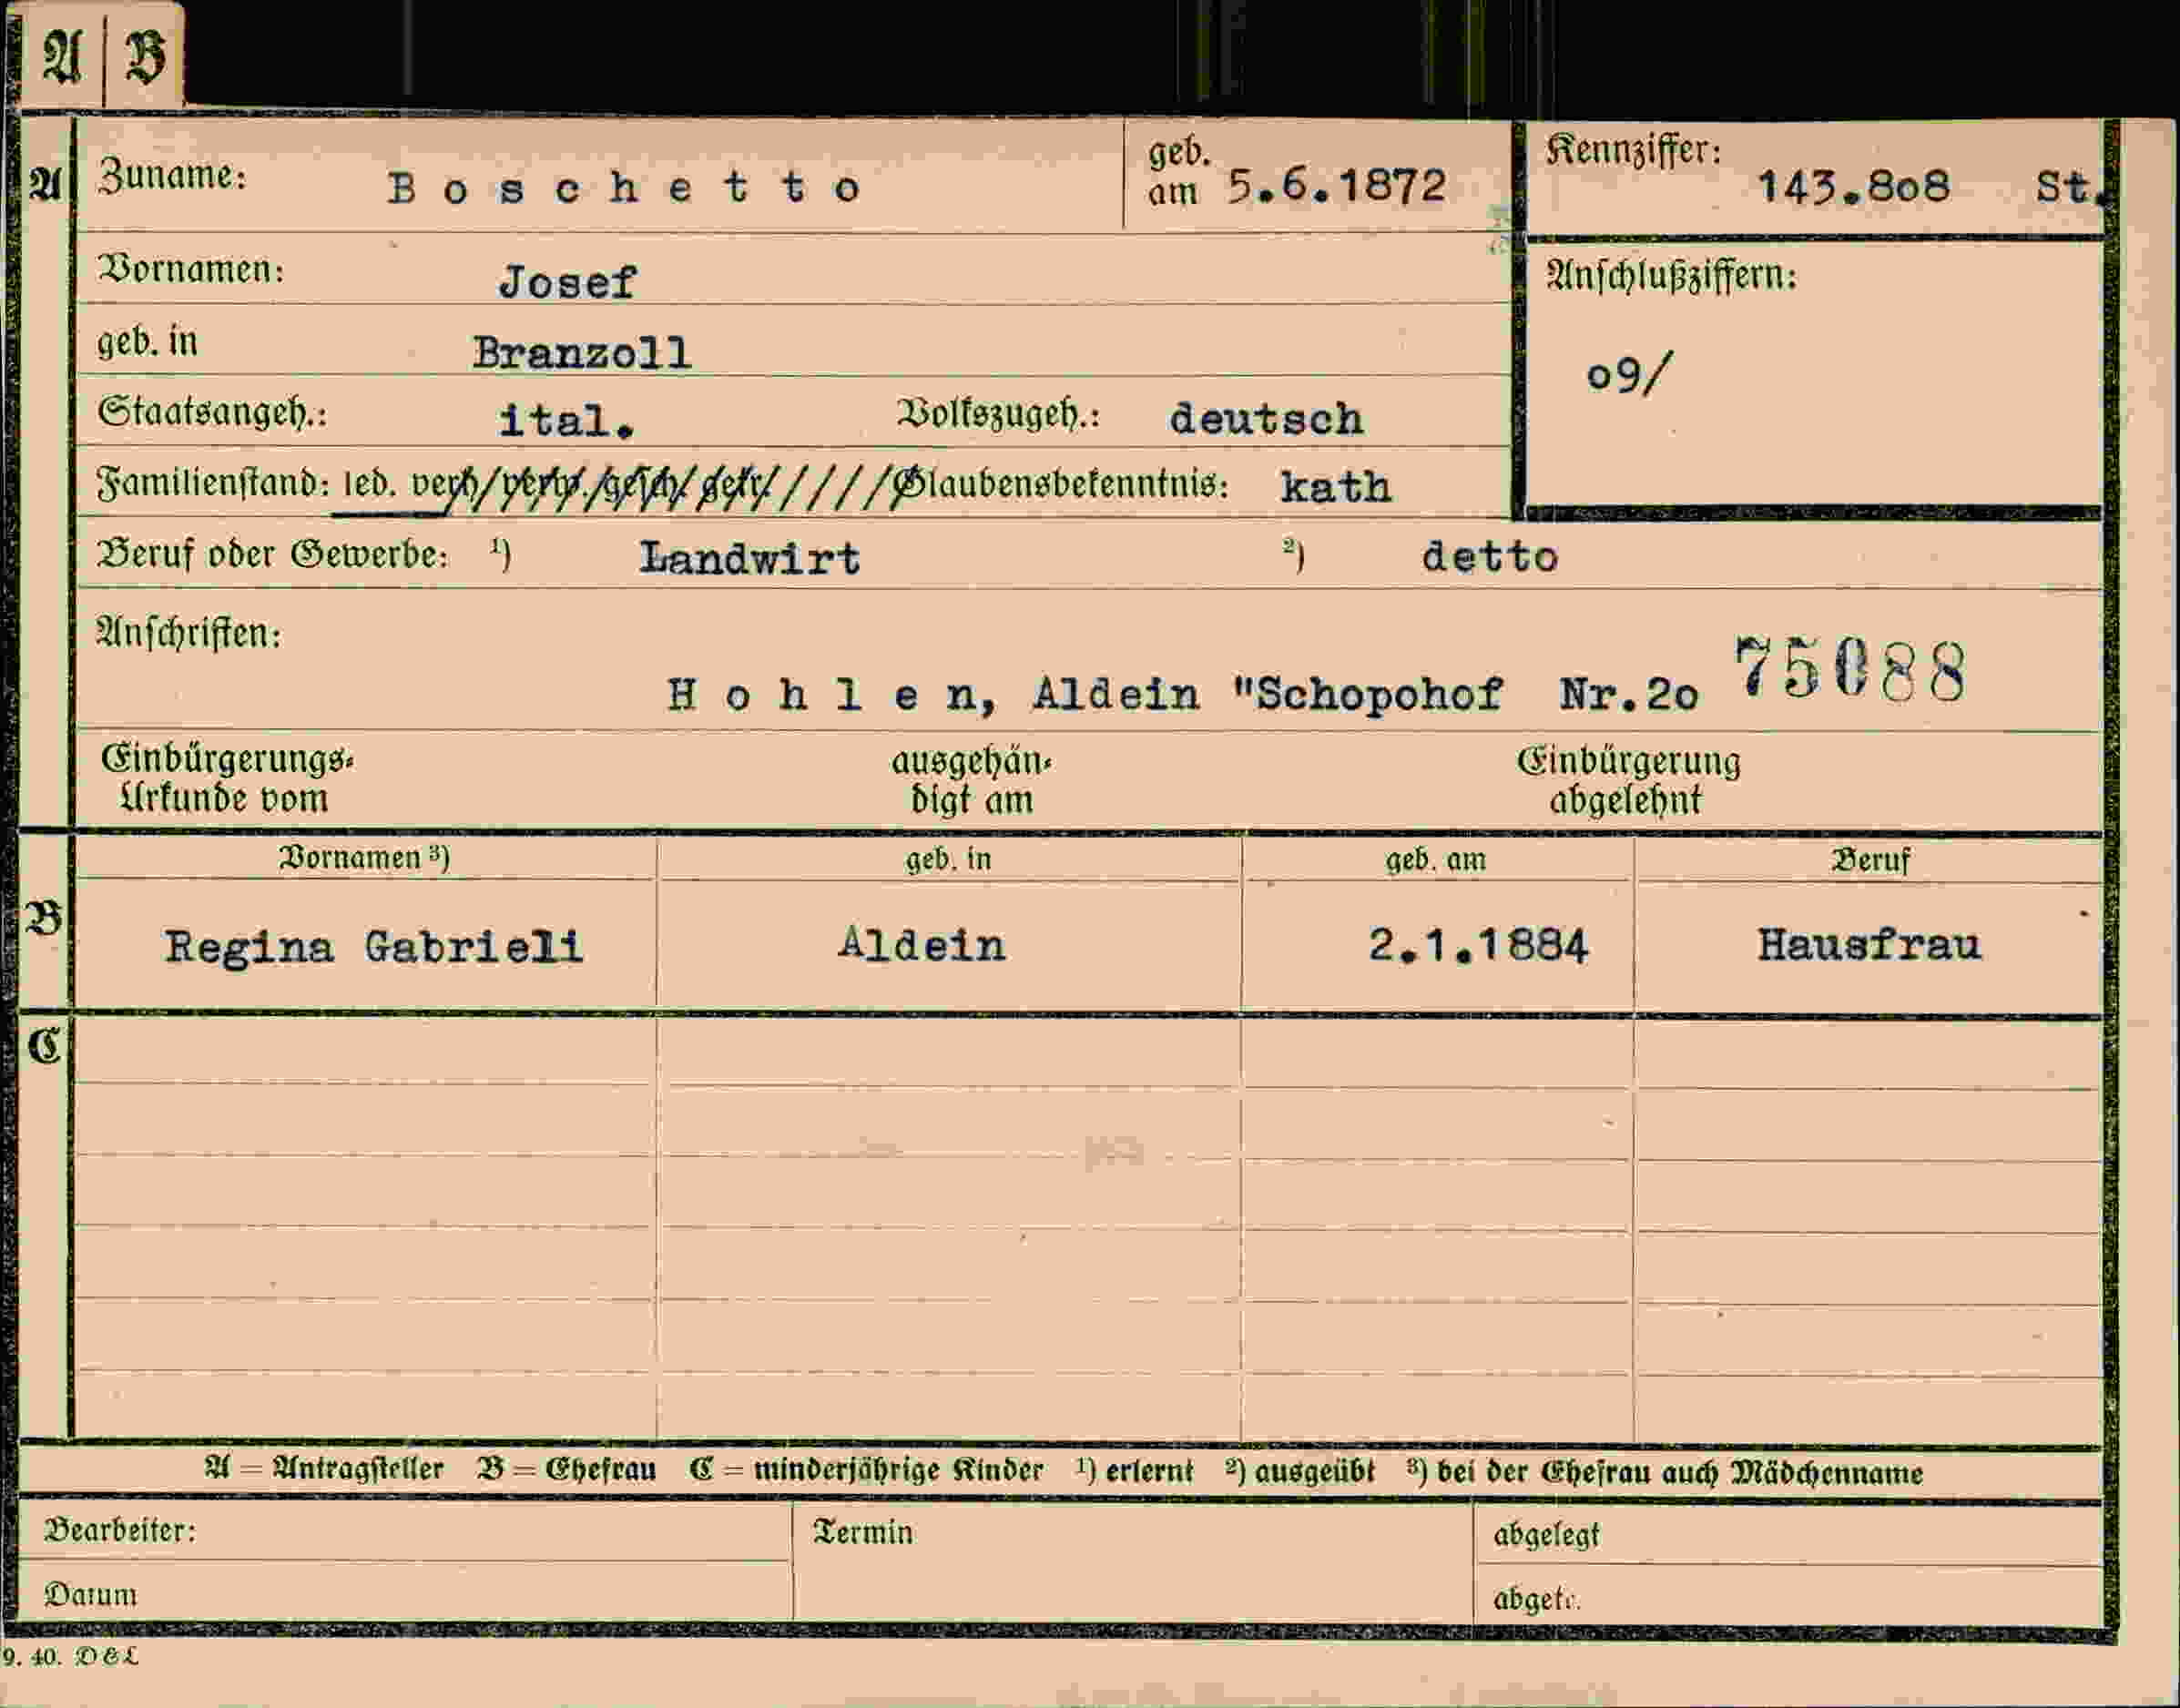 A B
A Zuname: Boschetto geb. am 5.6.1872 Kennziffer: 143.8o8 St.
Vornamen: Josef Anschlußziffern:
geb. in Branzoll o9/
Staatsangeh.: ital. Volkszugeh.: deutsch
Familienstand: led. verh/verw./gesch/getr./////Glaubensbekenntnis: kath
Beruf oder Gewerbe: ¹) Landwirt ²) detto
Anschriften:
Hohlen, Aldein "Schopohof Nr.2o 75088
Einbürgerungs- ausgehän- Einbürgerung
Urkunde vom digt am abgelehnt
Vornamen ³) geb. in geb. am Beruf
B Regina Gabrieli Aldein 2.1.1884 Hausfrau
C
A = Antragsteller B = Ehefrau C = minderjährige Kinder ¹) erlernt ²) ausgeübt ³) bei der Ehefrau auch Mädchenname
Bearbeiter: Termin abgelegt
Datum abgetr.
9. 40. D & L